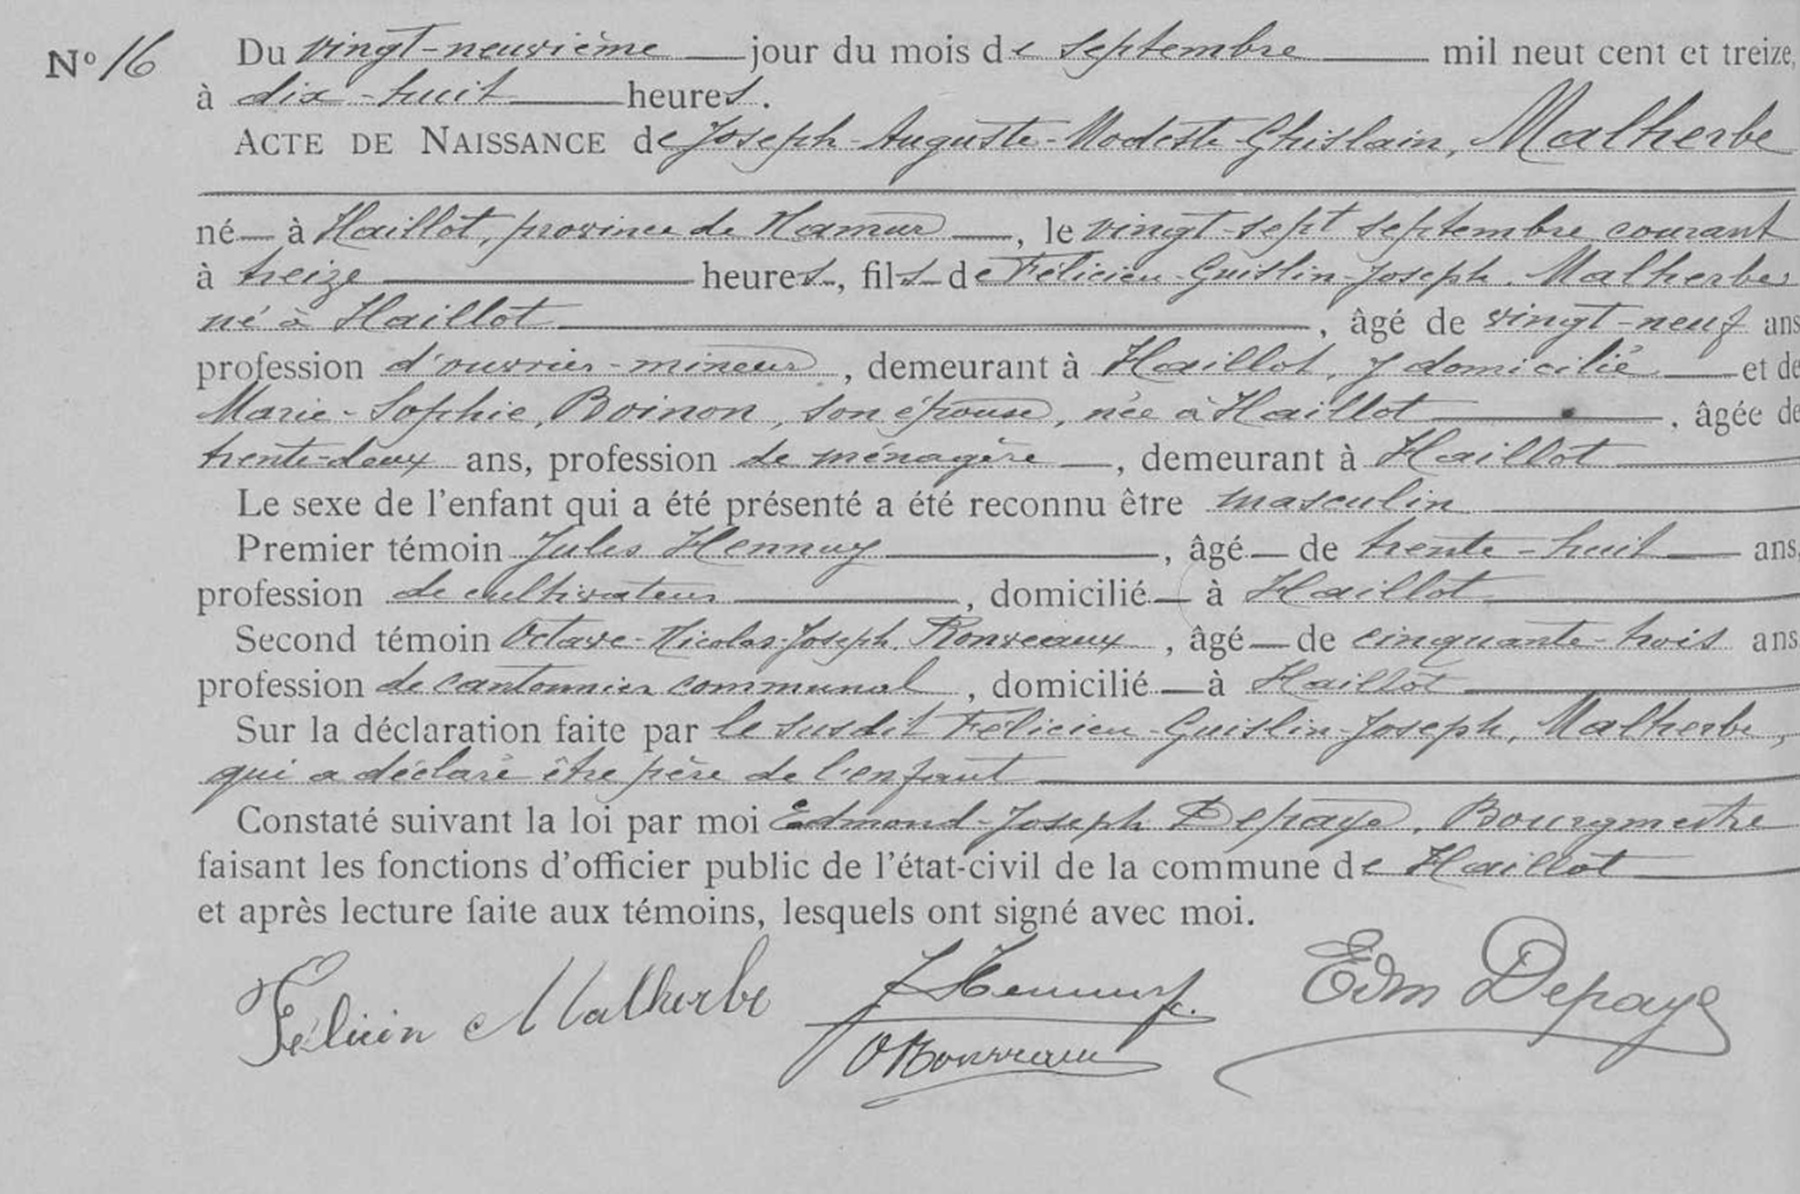 Nº 16 Du vingt-neuvième jour du mois de septembre mil neuf cent et treize,
à dix-huit heures.
ACTE DE NAISSANCE de Joseph-Auguste-Modeste-Ghislain, Malherbe
né à Haillot, province de Namur, le vingt-sept septembre courant
à treize heures, fils de Félicien-Guislin-Joseph, Malherbe
né à Haillot, âgé de vingt-neuf ans
profession d'ouvrier-mineur, demeurant à Haillot, y domicilié et de
Marie-Sophie, Boinon, son épouse, née à Haillot, âgée de
trente-deux ans, profession de ménagère, demeurant à Haillot
Le sexe de l'enfant qui a été présenté a été reconnu être masculin
Premier témoin Jules Hennuy, âgé de trente-huit ans,
profession de cultivateur, domicilié à Haillot
Second témoin Octave-Nicolas-Joseph, Ronveaux, âgé de cinquante-trois ans
profession de cantonnier communal, domicilié à Haillot
Sur la déclaration faite par le susdit Félicien-Guislin-Joseph, Malherbe,
qui a déclaré être père de l'enfant
Constaté suivant la loi par moi Edmond-Joseph Depaye, Bourgmestre
faisant les fonctions d'officier public de l'état-civil de la commune de Haillot
et après lecture faite aux témoins, lesquels ont signé avec moi.
Félicien Malherbe J Hennuy Edm Depaye
O Ronveaux